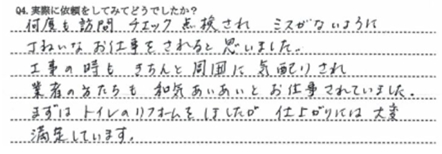 Q4.実際に依頼をしてみてどうでしたか?
何度も訪問 チェック点検され ミスがないように
丁ねいなお仕事をされると思いました。
工事の時も きちんと周囲に気配りされ
業者の方たちも 和気あいあいとお仕事されていました。
まずはトイレのリフォームをしましたが 仕上がりには大変
満足しています。